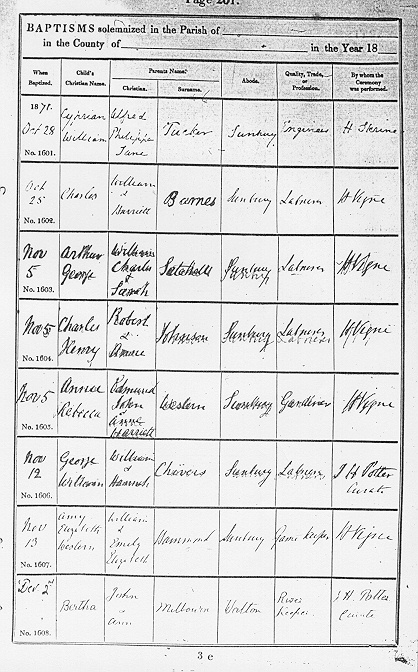 Page 201.
BAPTISMS solemnized in the Parish of
in the County of in the Year 18
When Baptized. Child's Christian Name. Parents Name. Abode. Quality, Trade, or Profession. By whom the Ceremony was performed.
Christian. Surname.
1871.
Oct 28
No. 1601.
Cyprian William
Alfred Philippa Jane
Tucker
Sunbury
Engineer
Oct 25
No. 1602.
Charles
William & Harriett
Barnes
Sunbury
Labourer
H Vigne
Nov 5
No. 1603.
Arthur George
Charles & Sarah
Sunbury
Labourer
H Vigne
Nov 5
No. 1604.
Charles Henry
Robert &
Johnson
Sunbury
Labourer
H Vigne
Nov 5
No. 1605.
Annie Rebecca
Edmund John & Anne Harriett
Western
Sunbury
Gardener
H Vigne
Nov 12
No. 1606.
George William
William & Hannah
Chivers
Sunbury
Labourer
J H Potter Curate
Nov 13
No. 1607.
Amy Elizabeth Western
William & Emily Elizabeth
Hammond
Sunbury
Game keeper
H Vigne
Dec 2
No. 1608.
Bertha
John & Ann
Milbourn
Walton
keeper
J H Potter Curate
3 c